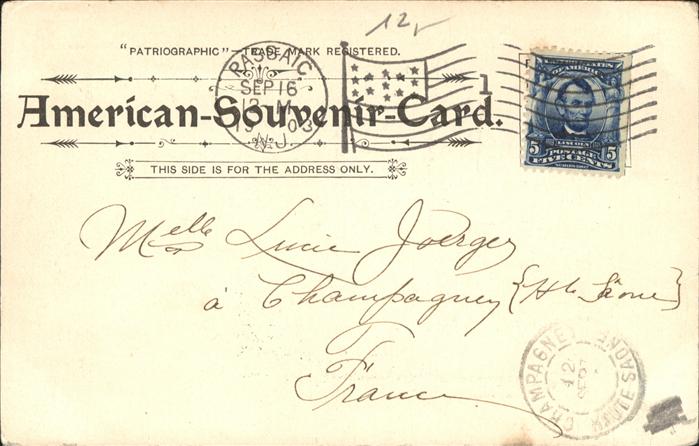 12
"PATRIOGRAPHIC"—TRADE MARK REGISTERED.
PASSAIC
SEP 16
N.J.
1
American-Souvenir-Card.
THIS SIDE IS FOR THE ADDRESS ONLY.
UNITED STATES
OF AMERICA
LINCOLN
5 POSTAGE 5
FIVE CENTS
Melle Lucie Joerger
à Champagney {Hte Saône}
France
CHAMPAGNEY
HAUTE SAONE
12